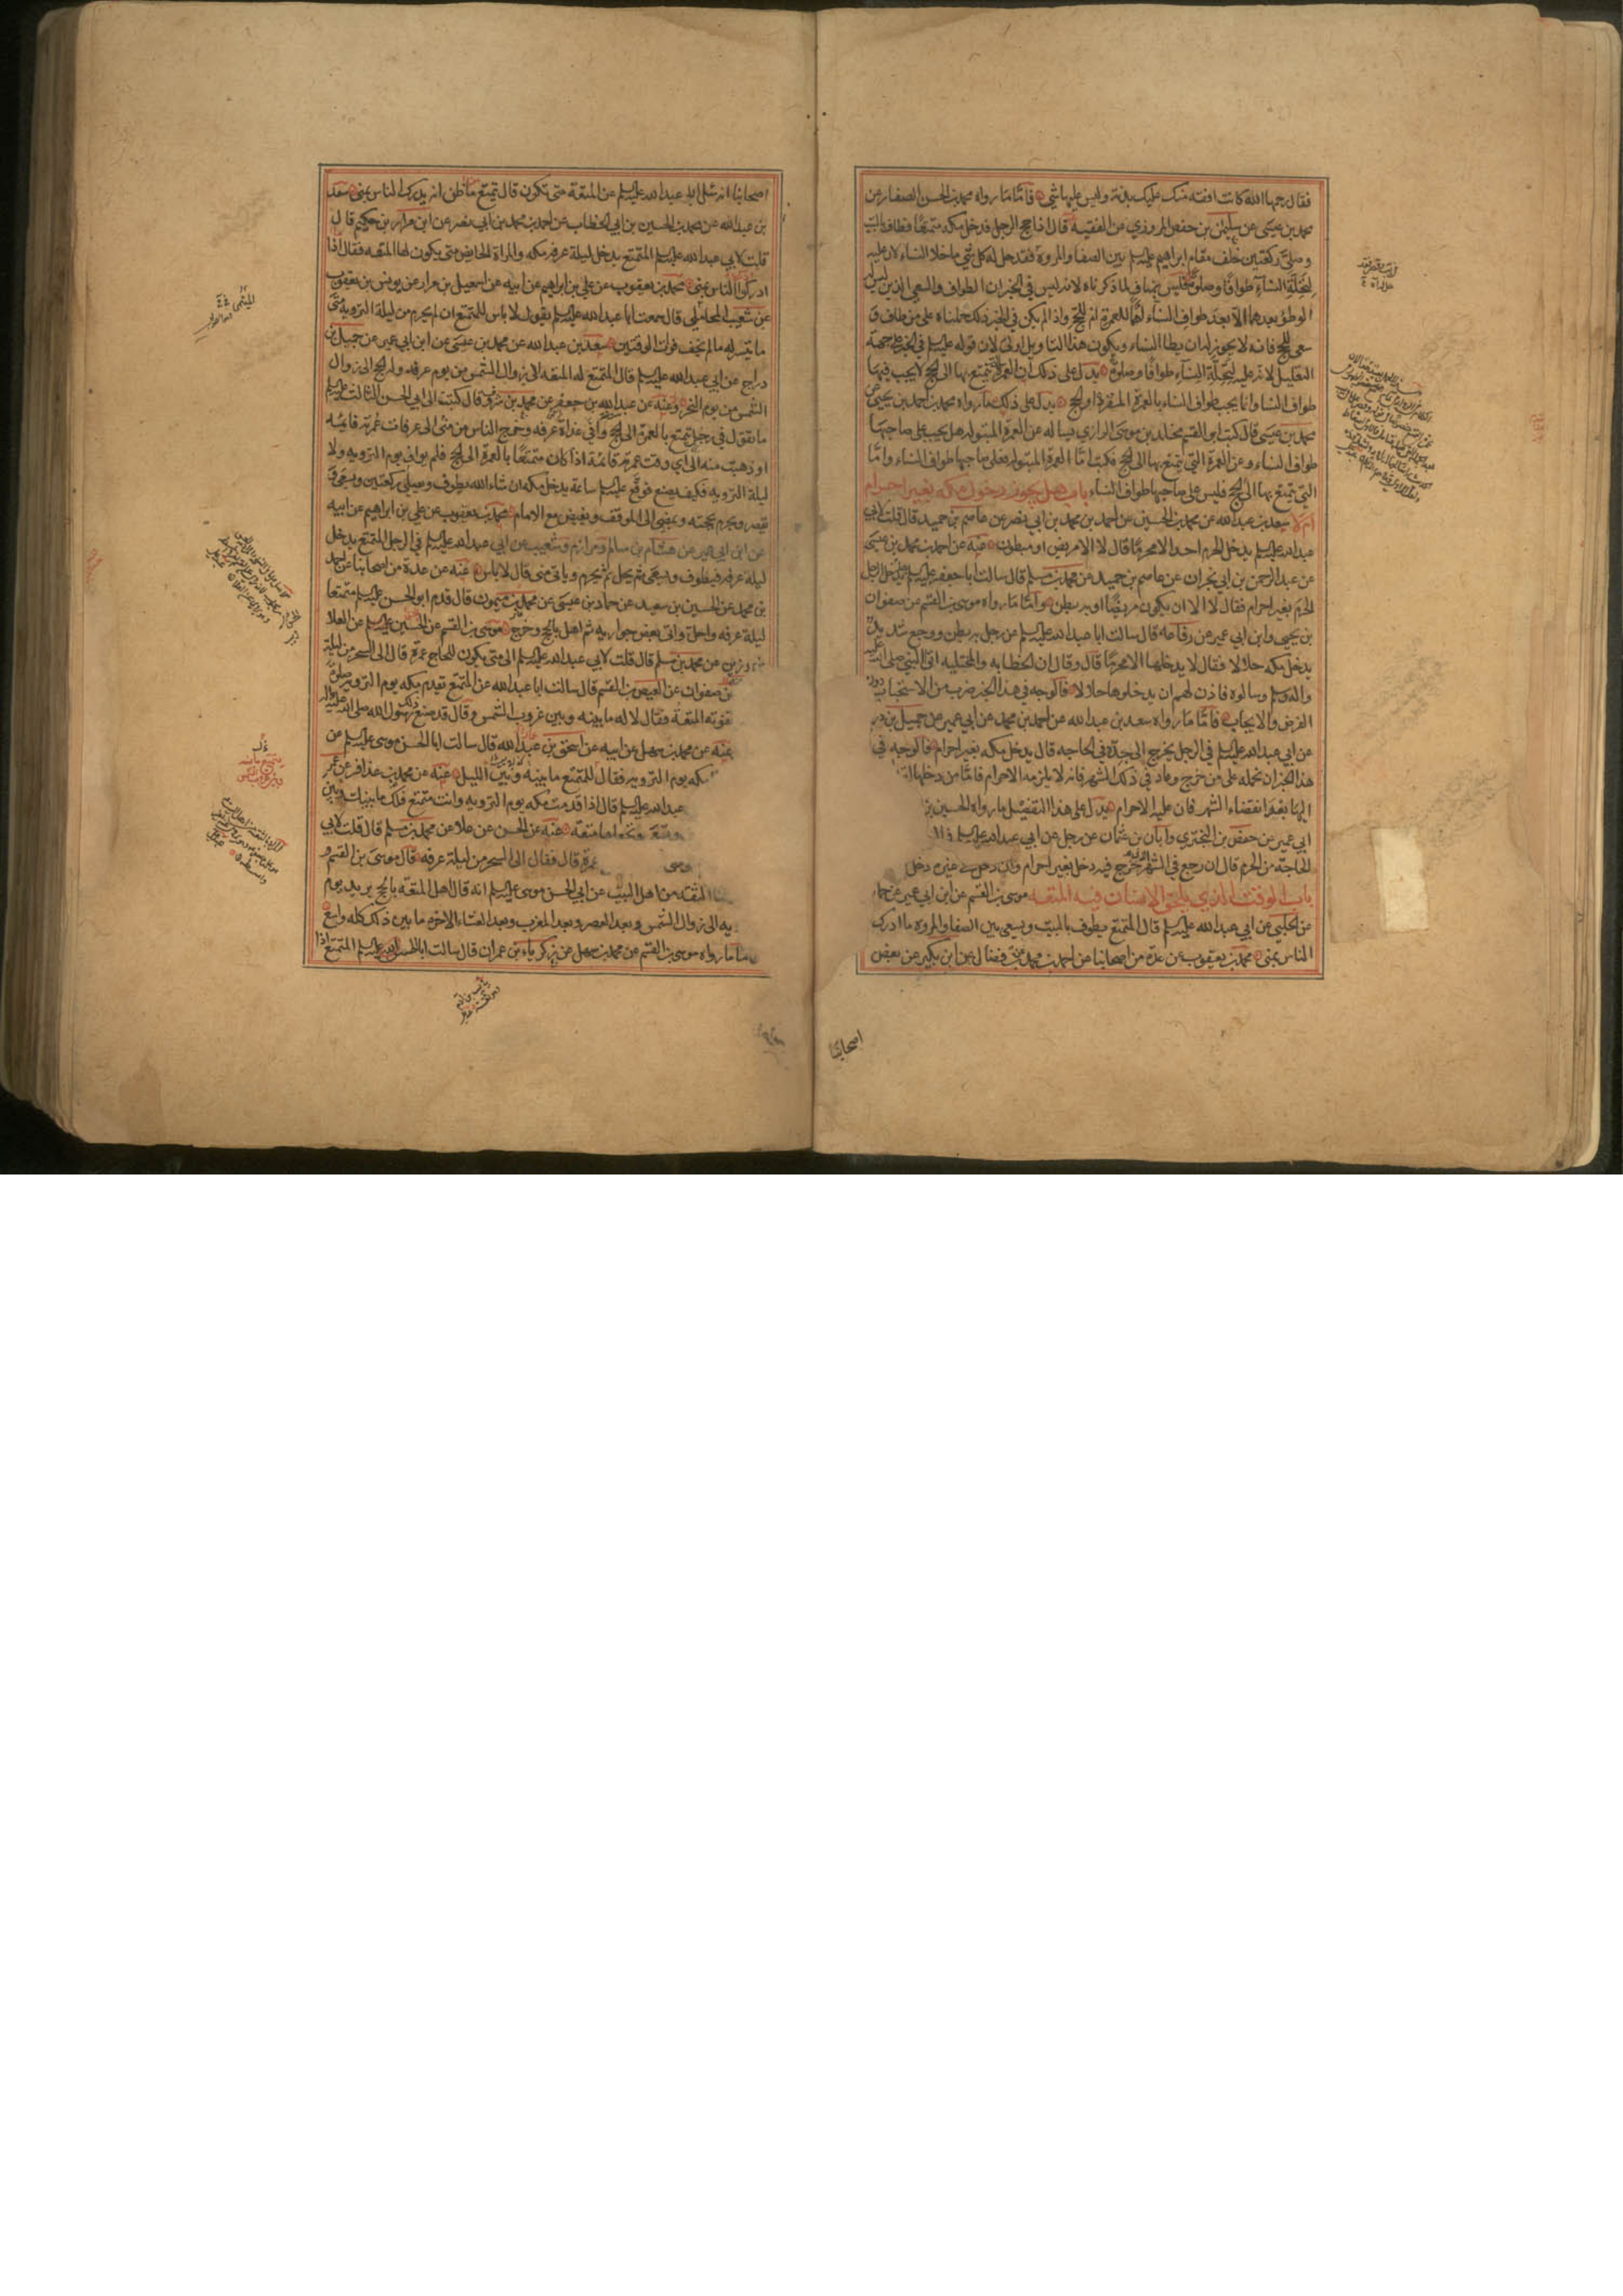 فقال رحمها الله كانت افقه منك عليك بدنة وليس عليها شي فاما ما رواه محمد بن الحسن الصفار عن
محمد بن عيسى عن سليمن بن حفص المروزي عن الفقيه قال اذا حج الرجل فدخل مكة متمتعا فطاف بالبيت
وصلى ركعتين خلف مقام ابراهيم عليه السلم بين الصفا والمروة فقد حل له كل شي ما خلا النساء لان عليه
لتحلة النساء طوافا وصلوة فليس بمناف لما ذكرناه لانه ليس في الخبر ان الطواف والسعي الذين ليس له
الوطؤ بعدهما الا بعد طواف النساء للعمرة او للحج واذا لم يكن في الخبر ذلك حملناه على من طاف و
سعى للحج فانه لا يجوز له ان يطا النساء ويكون هذا التاويل اولى لان قوله عليه السلم في الخبر على جهة
التعليل لان عليه لتحلة النساء طوافا وصلوة يدل على ذلك ان العمرة التي يتمتع بها الى الحج لا يجب فيها
طواف النسا وانما يجب طواف النساء بالعمرة المفردة او الحج يدل على ذلك ما رواه محمد بن احمد بن يحيى عن
محمد بن عيسى قال كتب ابو القسم مخلد بن موسى الرازي يساله عن العمرة المبتولة هل يجب على صاحبها
طواف النساء وعن العمرة التي يتمتع بها الى الحج فكتب اما العمرة المبتولة فعلى صاحبها طواف النساء واما
التي يتمتع بها الى الحج فليس على صاحبها طواف النساء باب هل يجوز دخول مكه بغير احرام
ام لا سعد بن عبد الله عن محمد بن الحسين عن احمد بن محمد بن ابي نصر عن عاصم بن حميد قال قلت لابي
عبد الله عليه السلم يدخل الحرم احد الا محرما قال لا الا مريض او مبطون عنه عن احمد بن محمد بن عيسى
عن عبد الرحمن بن ابي نجران عن عاصم بن حميد عن محمد بن مسلم قال سالت ابا جعفر عليه السلم هل يدخل الرجل
الحرم بغير احرام فقال لا الا ان يكون مريضا او به بطن واما ما رواه موسى بن القسم عن صفوان
بن يحيى وابن ابي عمير عن رفاعه قال سالت ابا عبد الله عليه السلم عن رجل به بطن ووجع شديد
يدخل مكه حلالا فقال لا يدخلها الا محرما قال وقال ان الحطابة والمختليه اتوا النبي صلى الله عليه
واله وسلم وسالوه فاذن لهم ان يدخلوها حلالا فالوجه في هذا الخبر ضرب من الاستحباب دون
الفرض والايجاب فاما ما رواه سعد بن عبد الله عن احمد بن محمد عن ابي عمير عن جميل بن در
عن ابي عبد الله عليه السلم في الرجل يخرج الى جدة في الحاجه قال يدخل مكه بغير احرام فالوجه في
هذا الخبر ان نحمله على من خرج وعاد في ذلك الشهر فانه لا يلزمه الاحرام فاما من دخلها
اليها بعد انقضاء الشهر فان عليه الاحرام يدل على هذا التفصيل ما رواه الحسين
ابي عمير عن حفص بن البختري وابان بن عثمان عن رجل عن ابي عبد الله عليه السلم
الحاجة من الحرم قال ان رجع في الشهر الذي خرج فيه دخل بغير احرام وان دخل في غيره دخل
باب الوقت الذي يلحق الانسان فيه المتعه موسى بن القسم عن ابن ابي عمير عن حما
عن الحلبي عن ابي عبد الله عليه السلم قال المتمتع يطوف بالبيت ويسعى بين الصفا والمروه ما ادرك
الناس بمنى محمد بن يعقوب عن عدة من اصحابنا عن احمد بن محمد عن ابن فضال عن ابن بكير عن بعض
اصحابنا
اصحابنا انه سئل ابا عبد الله عليه السلم عن المتعة متى تكون قال يتمتع ما ظن انه يدرك الناس بمنى سعد
بن عبد الله عن محمد بن الحسين بن ابي الخطاب عن احمد بن محمد بن ابي نصر عن مرازم بن حكيم قال
قلت لابي عبد الله عليه السلم المتمتع يدخل ليلة عرفه مكه والمراة الحائض متى يكون لها المتعه فقال اذا
ادركوا الناس بمنى محمد بن يعقوب عن علي بن ابراهيم عن ابيه عن اسمعيل بن مرار عن يونس بن يعقوب
عن شعيب المحاملي قال سمعت ابا عبد الله عليه السلم يقول لا باس للمتمتع ان لم يحرم من ليلة الترويه متى
ما تيسر له ما لم يخف فوات الموقفين سعد بن عبد الله عن محمد بن عيسى عن ابن ابي عمير عن جميل بن
دراج عن ابي عبد الله عليه السلم قال المتمتع له المتعه الى زوال الشمس من يوم عرفه وله الحج الى زوال
الشمس من يوم النحر وعنه عن عبد الله بن جعفر عن محمد بن سرو قال كتبت الى ابي الحسن الثالث عليه السلم
ما تقول في رجل تمتع بالعمرة الى الحج وافى غداة عرفه وخرج الناس من منى الى عرفات عمرته قائمه
او ذهبت منه الى اي وقت عمرته قائمة اذا كان متمتعا بالعمرة الى الحج فلم يواف يوم الترويه ولا
ليلة الترويه فكيف يصنع فوقع عليه السلم ساعة يدخل مكه ان شاء الله يطوف ويصلي ركعتين ويسعى و
يقصر ويحرم بحجته ويمضي الى الموقف ويفيض مع الامام محمد بن يعقوب عن علي بن ابراهيم عن ابيه
عن ابن ابي عمير عن هشام بن سالم ومرازم وشعيب عن ابي عبد الله عليه السلم في الرجل المتمتع يدخل
ليلة عرفه فيطوف ويسعى ثم يحل ثم يحرم وياتي منى قال لا باس عنه عن عدة من اصحابنا عن احمد
بن محمد عن الحسين بن سعيد عن حماد بن عيسى عن محمد بن ميمون قال قدم ابو الحسن عليه السلم متمتعا
ليلة عرفه واحل واتى بعض جواريه ثم اهل بالحج وخرج موسى بن القسم عن الحسين عن العلا
بن رزين عن محمد بن مسلم قال قلت لابي عبد الله عليه السلم الى متى يكون للحاج عمرة قال الى السحر من ليلة
عن صفوان عن العيص بن القسم قال سالت ابا عبد الله عن المتمتع تقدم مكه يوم الترويه صلوة
تفوته المتعة فقال لا له ما بينه وبين غروب الشمس وقال قد صنع ذلك رسول الله صلى الله عليه واله
عنه عن محمد بن سهل عن ابيه عن اسحق بن عبد الله قال سالت ابا الحسن موسى عليه السلم عن
مكه يوم الترويه فقال للمتمتع ما بينه وبين الليل عنه عن محمد بن عذافر عن عمر
عبد الله عليه السلم قال اذا قدمت مكه يوم الترويه وانت متمتع فلك ما بينك وبين
وتجعلها متعه عنه عن الحسن عن علا عن محمد بن مسلم قال قلت لابي
عمرة قال فقال الى السحر من ليلة عرفه قال موسى بن القسم و
الثقة من اهل البيت عن ابي الحسن موسى عليه السلم انه قال اهل المتعة بالحج يريد يوم
يه الى زوال الشمس وبعد العصر وبعد المغرب وبعد العشاء الاخره ما بين ذلك كله واسع
ما ما رواه موسى بن القسم عن محمد بن سهل عن زكرياء بن عمران قال سالت ابا الحسن عليه السلم المتمتع اذا